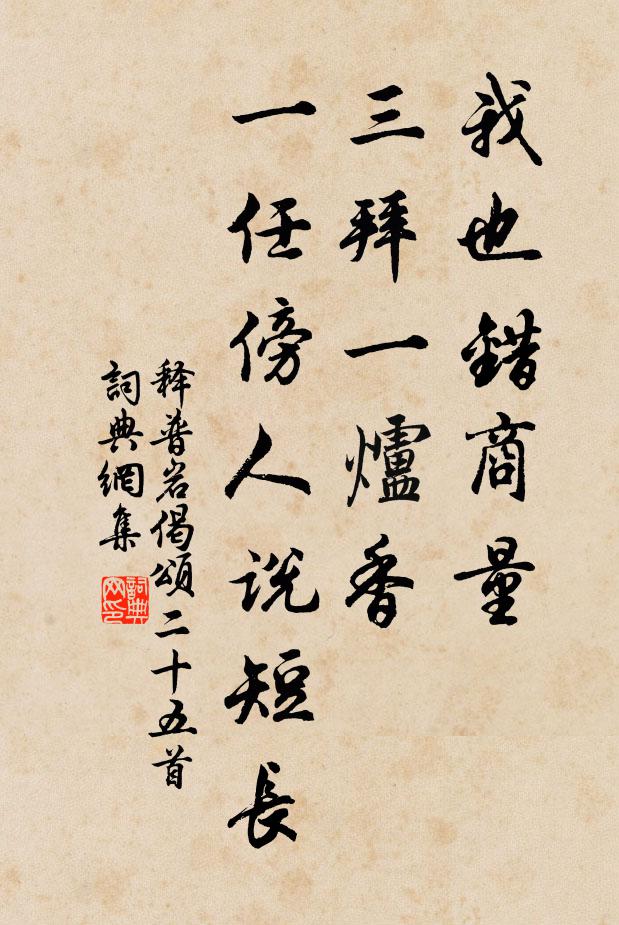 我也錯商量
三拜一爐香
一任傍人説短長
释普岩偈頌二十五首
詞典網集
詞典
网印